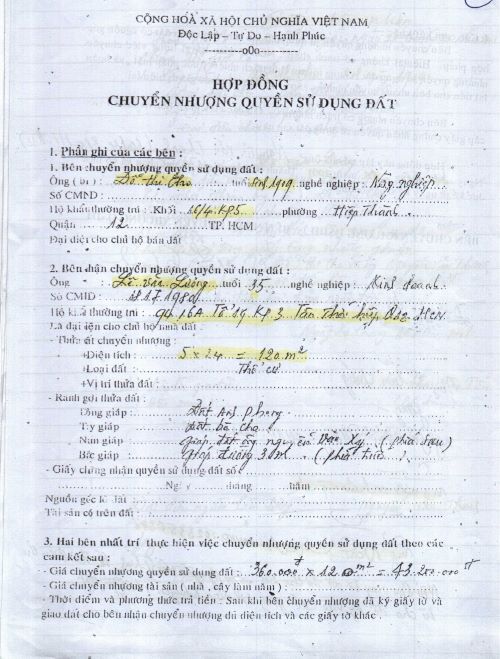 CỘNG HOÀ XÃ HỘI CHỦ NGHĨA VIỆT NAM
Độc Lập – Tự Do – Hạnh Phúc
----------o0o----------
HỢP ĐỒNG
CHUYỂN NHƯỢNG QUYỀN SỬ DỤNG ĐẤT
I. Phần ghi của các bên :
1. Bên chuyển nhượng quyền sử dụng đất :
Ông ( bà ) : Đỗ thị tuổi sinh 1919 nghề nghiệp : Nông nghiệp
Số CMND :
Hộ khẩu thường trú : Khối 16/4 KP5 phường : Hiệp Thành
Quận 12 TP. HCM
Đại diện cho chủ hộ bán đất
2. Bên nhận chuyển nhượng quyền sử dụng đất :
Ông : Lê văn tuổi 35 nghề nghiệp : Kinh doanh
Số CMND :
Hộ khẩu thường trú : 16A Tổ KP 3 Tân Thới HCM
Là đại diện cho chủ hộ nhà đất
- Thửa đất chuyển nhượng :
+Diện tích : 5 x 24 = 120 m²
+Loại đất : Thổ cư
+Vị trí thửa đất :
- Ranh giới thửa đất :
Đông giáp : Đất anh Phong
Tây giáp : đất bà
Nam giáp : giáp đất ông nguyễn Văn Xý ( phía sau )
Bắc giáp : giáp đường 3m ( phía trước )
- Giấy chứng nhận quyền sử dụng đất số :
Ngày tháng năm
Nguồn gốc lô đất :
Tài sản có trên đất :
3. Hai bên nhất trí thực hiện việc chuyển nhượng quyền sử dụng đất theo các
cam kết sau :
- Giá chuyển nhượng quyền sử dụng đất : 360.000đ x 120 m² = 43.200.000đ
- Giá chuyển nhượng tài sản ( nhà , cây lâu năm ) :
- Thời điểm và phương thức trả tiền : Sau khi bên chuyển nhượng đã ký giấy tờ và
giao đất cho bên nhận chuyển nhượng đủ diện tích và các giấy tờ khác .